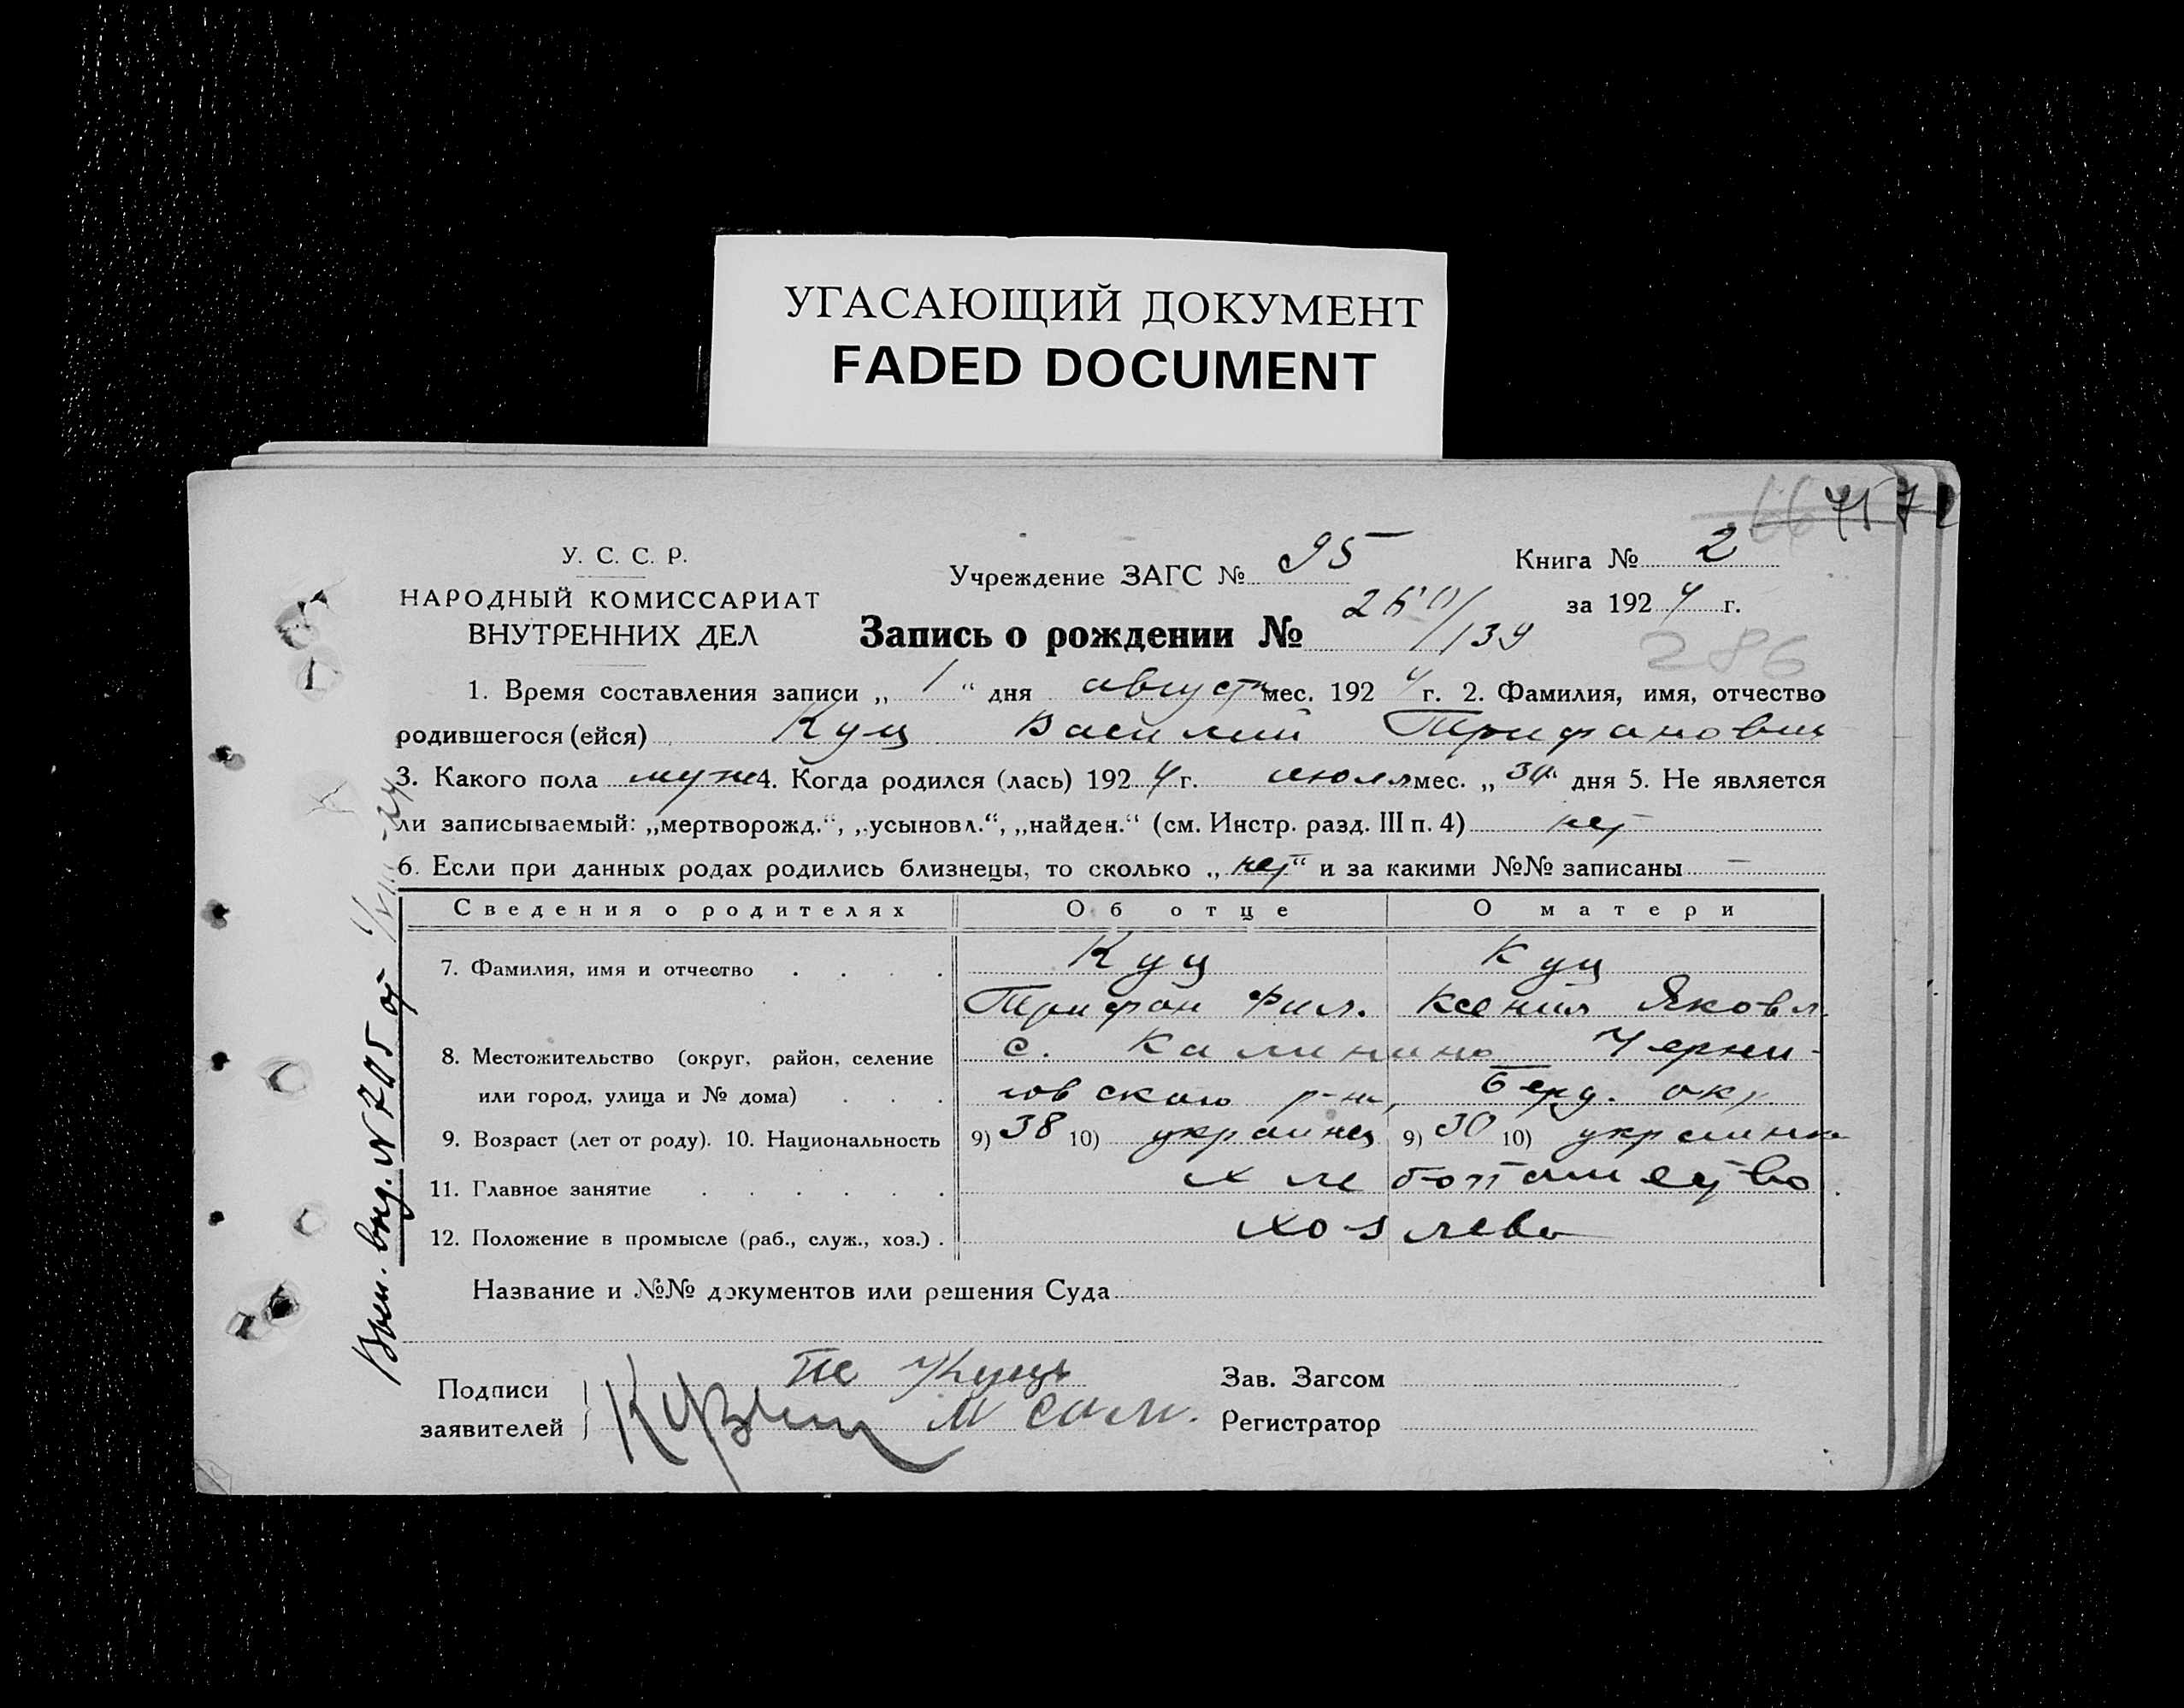 УГАСАЮЩИЙ ДОКУМЕНТ
FADED DOCUMENT
У. С. С. Р.
НАРОДНЫЙ КОМИССАРИАТ
ВНУТРЕННИХ ДЕЛ
Учреждение ЗАГС № 95
Книга № 2
за 1924 г.
Запись о рождении № /139
286
1. Время составления записи „ 1 “ дня августа мес. 1924 г. 2. Фамилия, имя, отчество
родившегося (ейся) Куц Василий Трифанович
3. Какого пола муж 4. Когда родился (лась) 1924 г. июля мес. „ 30 “ дня 5. Не является
ли записываемый: „мертворожд.“, „усыновл.“, „найден.“ (см. Инстр. разд. III п. 4) нет
6. Если при данных родах родились близнецы, то сколько „ нет “ и за какими №№ записаны —
Сведения о родителях Об отце О матери
7. Фамилия, имя и отчество Куц Куц
Трифан Фил. Ксения Яковл.
8. Местожительство (округ, район, селение с. Калинино Черни-
или город, улица и № дома) говского р-на, Берд. окр.
9. Возраст (лет от роду). 10. Национальность 9) 38 10) украинец 9) 30 10) украинка
11. Главное занятие хлебопашество
12. Положение в промысле (раб., служ., хоз.) хозяева
Название и №№ документов или решения Суда
Подписи
заявителей
Зав. Загсом
Регистратор